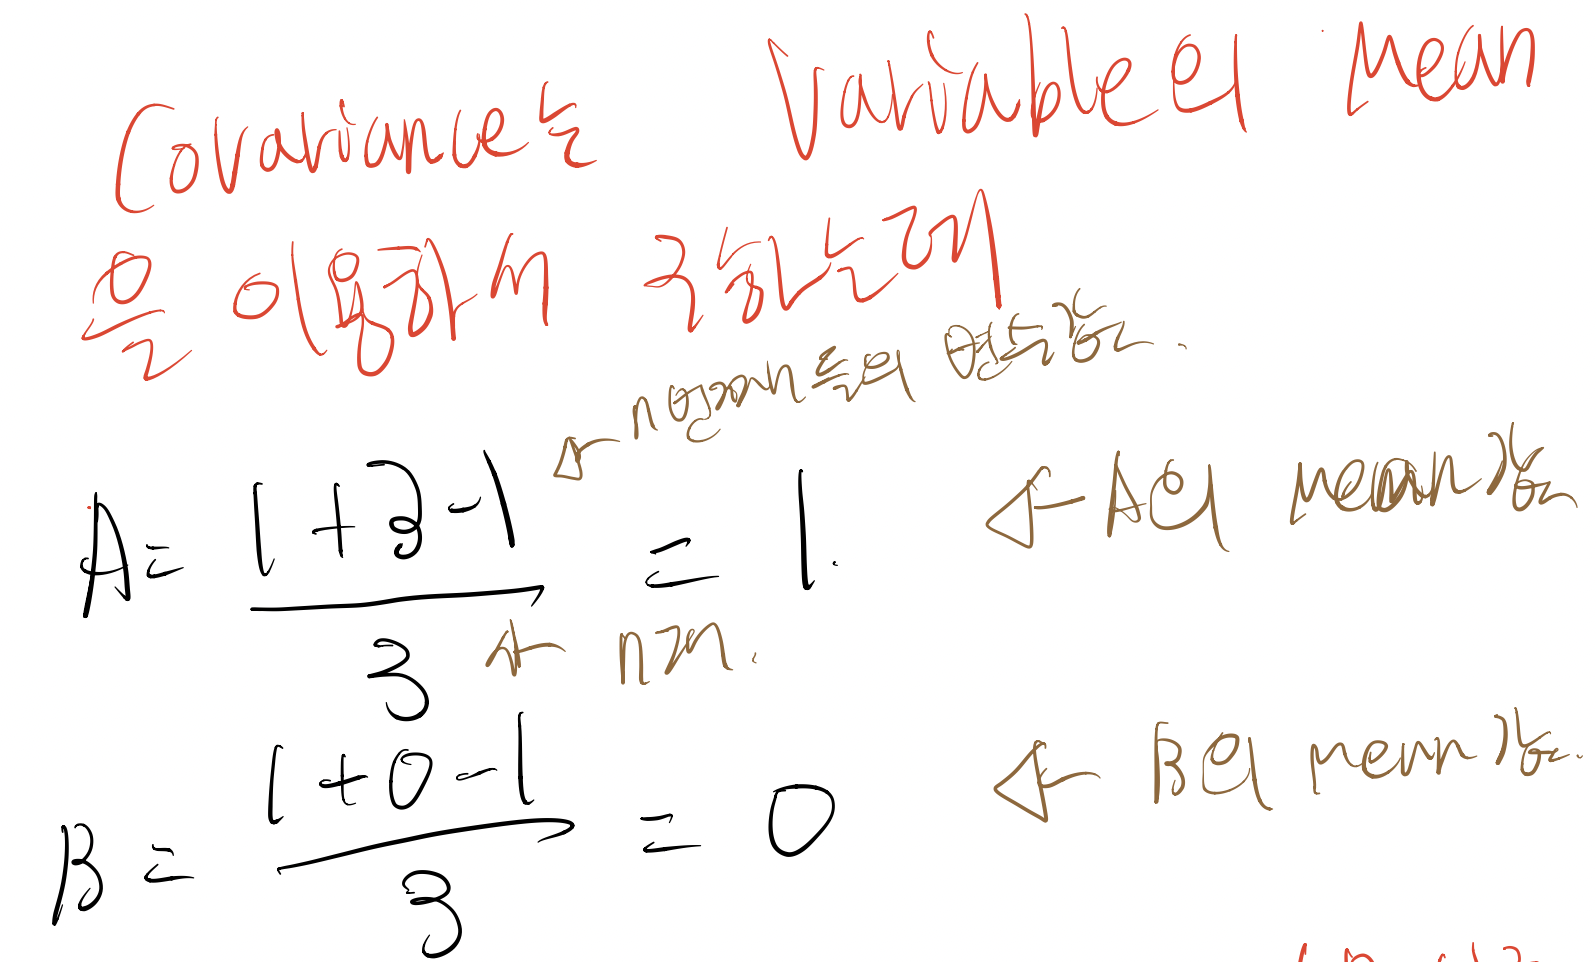 Covariance는 Variable의 mean
을 이용하서 구하는데
n번째들의 변수값.
A = 1+3-1 / 3 = 1. A의 mean값
n개.
B = 1+0-1 / 3 = 0 B의 mean값.